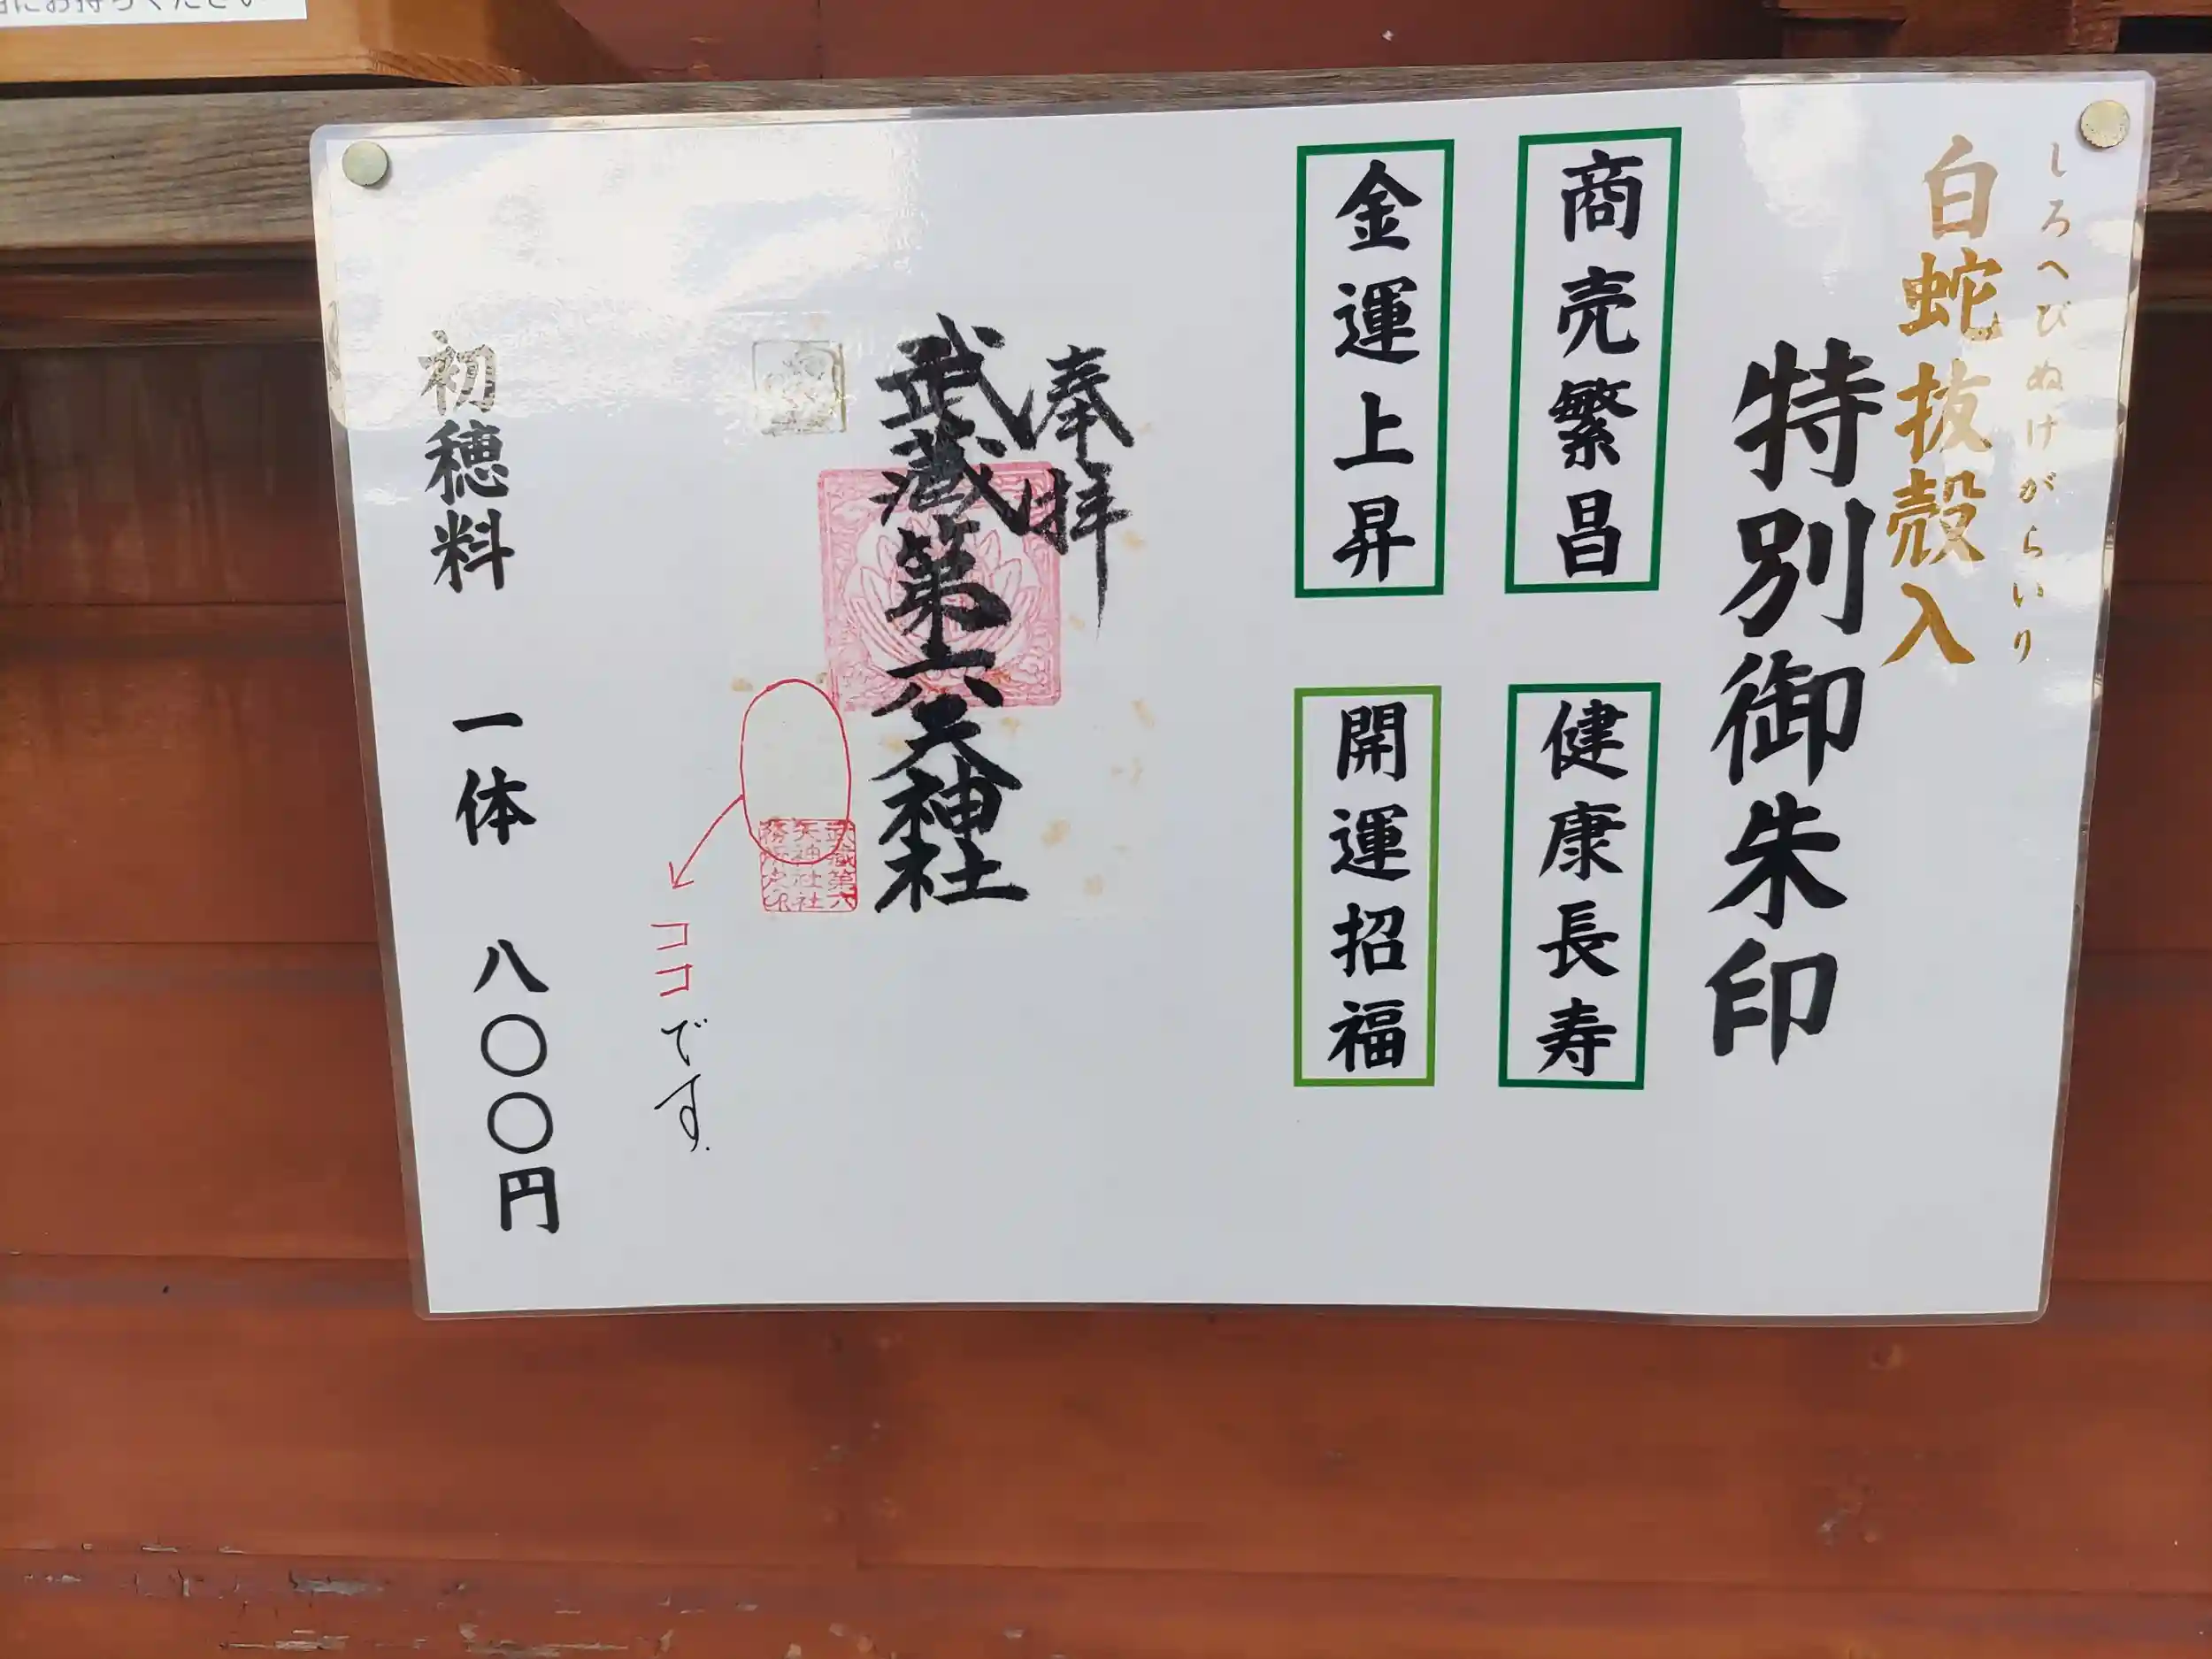 にお持ちください
しろへびぬけがらいり
白蛇抜殻入
特別御朱印
商売繁昌
健康長寿
金運上昇
開運招福
奉拝
武蔵第六天神社
武蔵第六
天神社社
務所之印
ココです.
初穂料 一体 八〇〇円